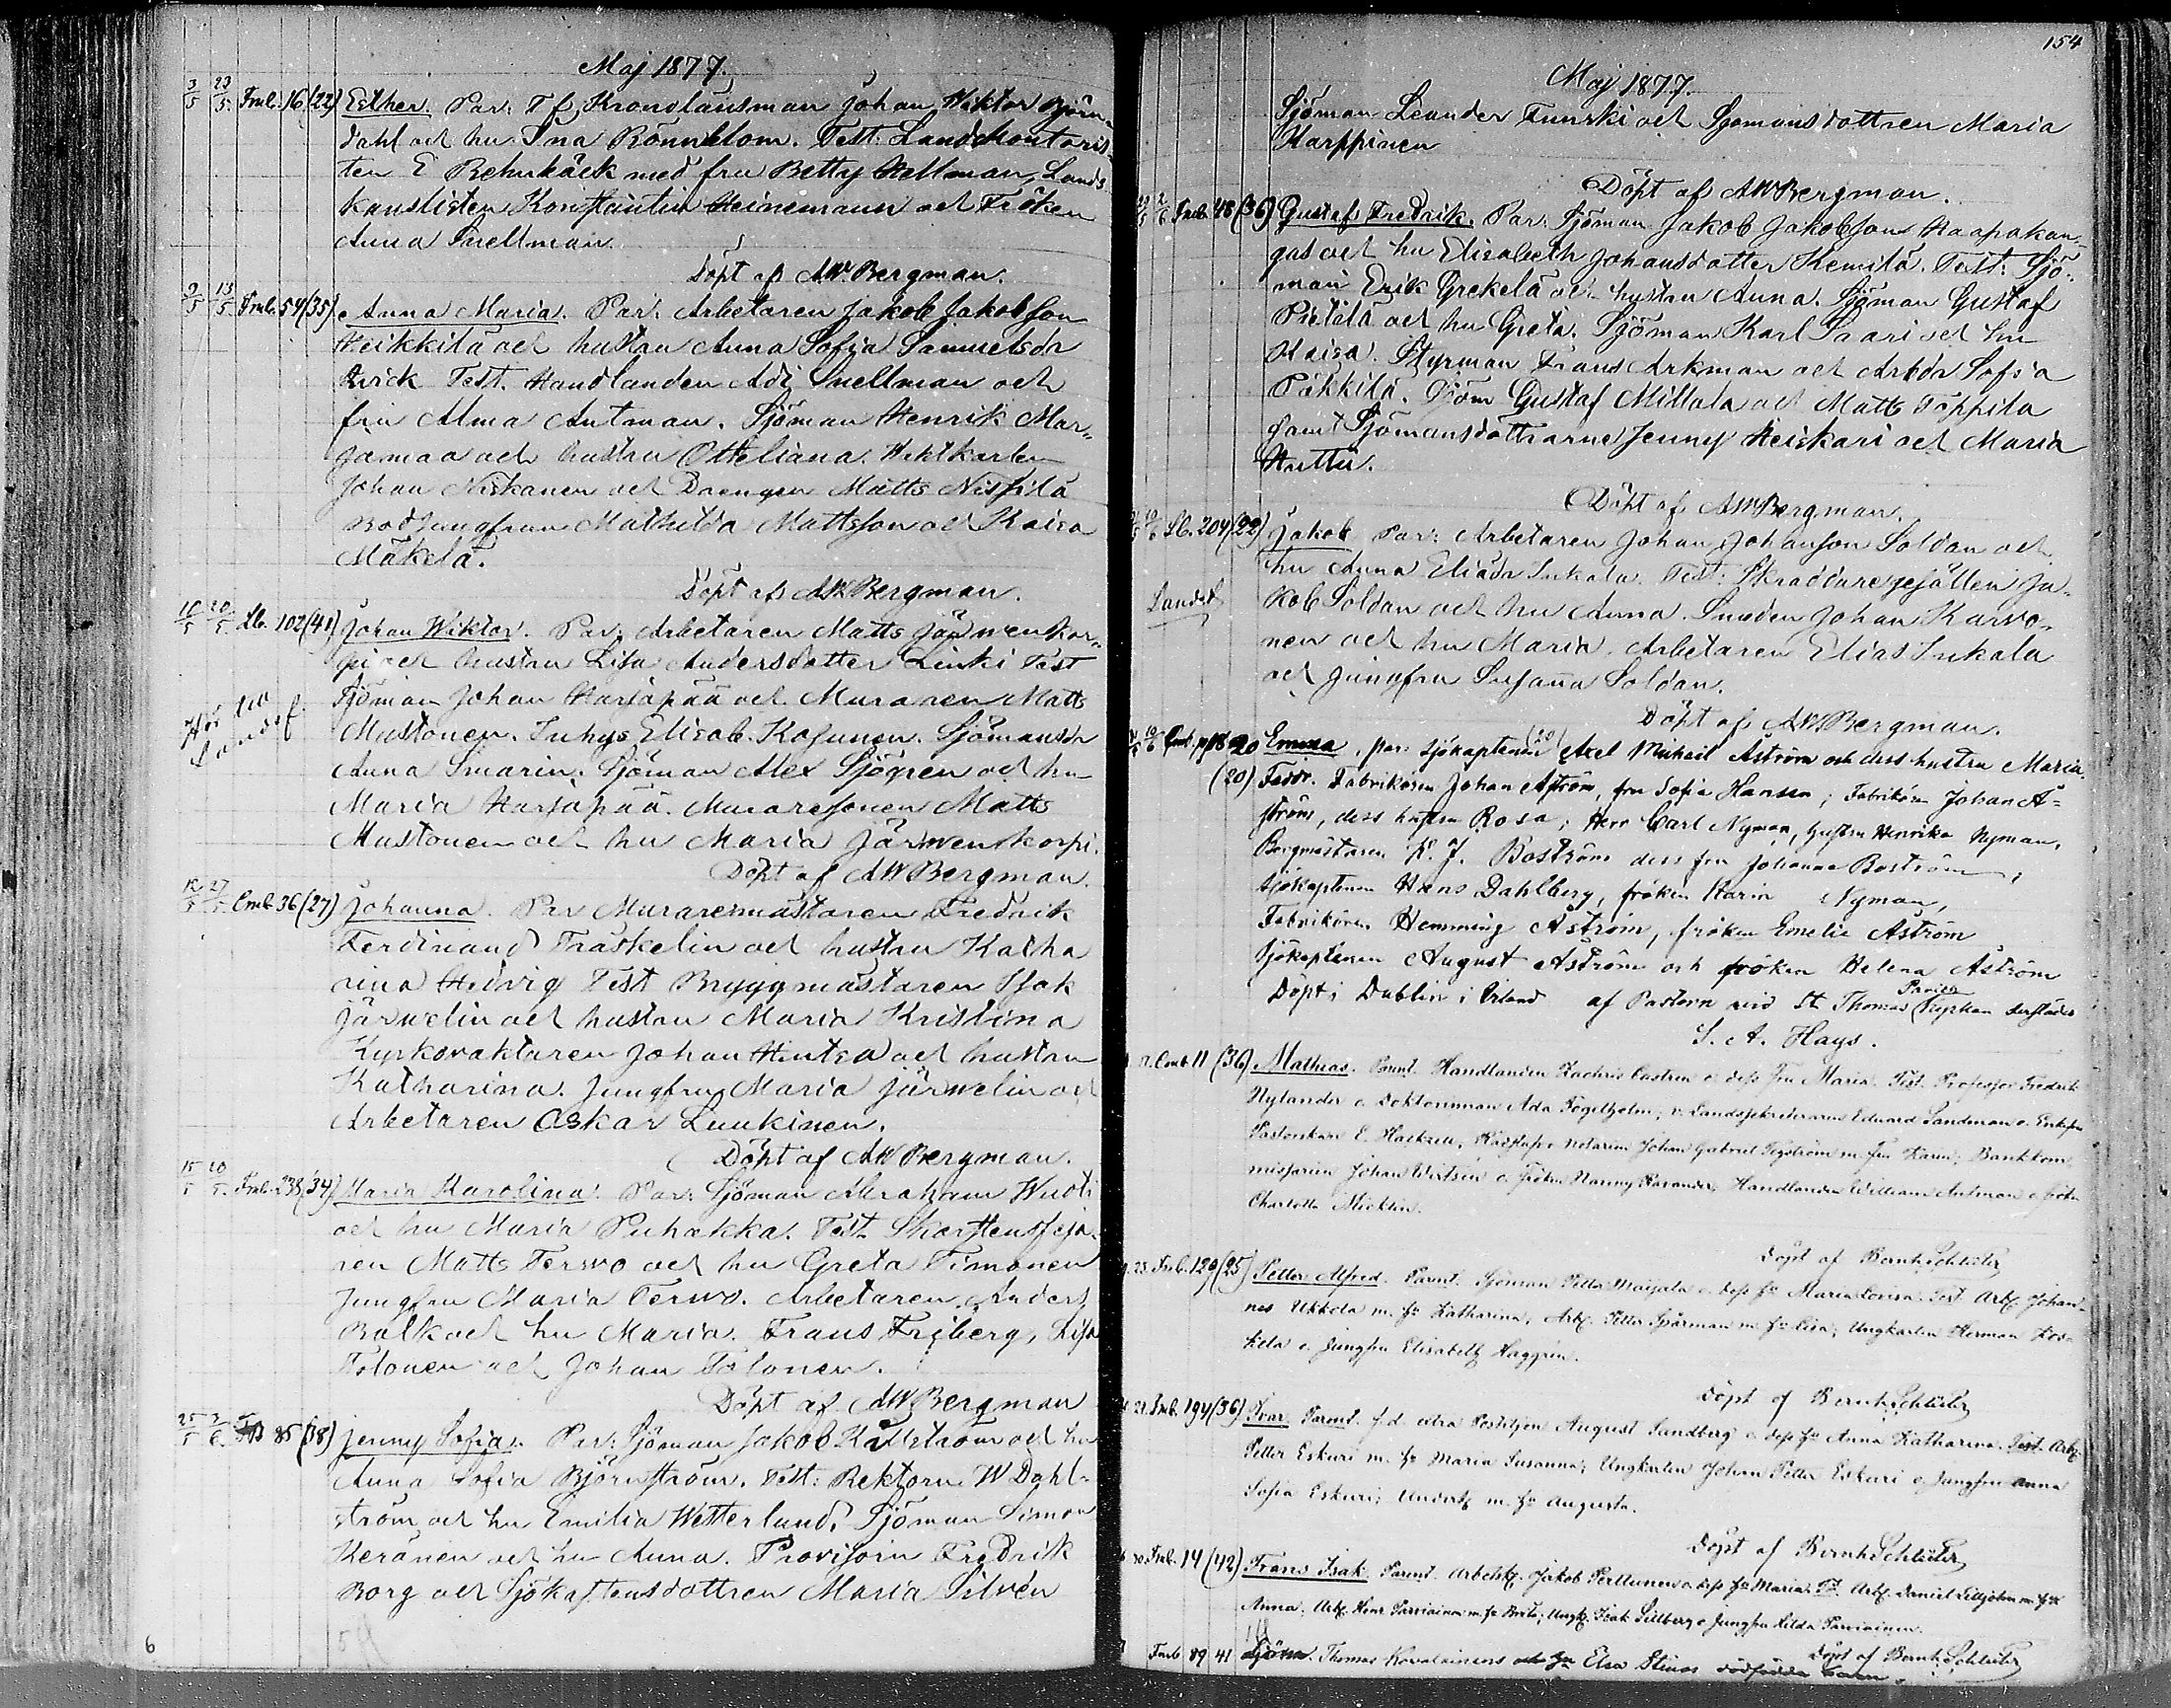 Maj 1877.
3/5 23/5 Fmb. 16 (22) Esther. Par: T f Kronolänsman Johan Wiktor Björn-
dahl och hu Ina Rönnblom. Test: Landtkontoris-
ten E Rehnbäck med fru Betty Hellman, Lands
kanslisten Konstantin Heinemann och Fröken
Anna Snellman
Döpt af AW.Bergman.
9/5 13/5 Fmb. 54 (35) Anna Maria. Par: Arbetaren Jakob Jakobson
Heikkilä och hustru Anna Sofia Samuelsdr
Test. Handlanden Adi Snellman och
fru Alma Antman. Sjöman Henrik Mar-
jamaa och hustru Otteliana.
Johan Niskanen och Drengen Matts Niskilä
Bodjungfrun Mathilda Mattsson och Kaisa
Mäkelä.
Döpt af AW.Bergman.
20/5 Lb. 102 (41) Johan Wiktor. Par: Arbetaren Matts Järwenkor-
pi och hustru Lisa Andersdotter Linki Test
Sjöman Johan Harjapää och Muraren Matts
Mustonen. Inhys Elisab. Kosunen. Sjömansdr
Anna Smarin. Sjöman Alex Sjögren och hu
Maria Harjapää. Muraresonen Matts
Mustonen och hu Maria Järwenkorpi.
Döpt af AW Bergman.
12/5 27/5 Emb. 36 (27) Johanna. Par Muraremästaren Fredrik
Ferdinand Träskelin och hustru Katha
rina Hedvig Test Byggmästaren Isak
Järwelin och hustru Maria Kristina
Kyrkovaktaren Johan Hintsa och hustru
Katharina. Jungfru Maria Järwelin och
Arbetaren Oskar Luukinen.
Döpt af AW Bergman.
15/5 20/5 Fmb. 238 (34) Maria Karolina. Par: Sjöman Abraham Wuoti
och hu Maria Puhakka. Test. Skorstensfeja-
ren Matts Terwo och hu Greta Timonen
Jungfru Maria Terwo. Arbetaren Anders
Balk och hu Maria. Frans Friberg, Lisa
Tolonen och Johan Tolonen.
Döpt af AW Bergman
25/5 85 (38) Jenny Sofia. Par: Sjöman Jakob Källström och hu
Anna Sofia Björnström. Test: Rektorn W Dahl-
ström och hu Emilia Wetterlund. Sjöman Simon
Keränen och hu Anna. Provisorn Fredrik
Borg och Sjökaptensdottren Maria Silvén
6
154
Maj 1877.
Sjöman Leander Funski och Sjomansdottren Maria
Karppinen
Döpt af AW.Bergman.
Fmb. 48 (36) Gustaf Fredrik. Par: Sjöman Jakob Jakobson Haapakan-
gas och hu Elisabeth Johansdotter Kemilä. Test: Sjö-
man Erik Grekelä och hustru Anna. Sjöman Gustaf
Pietilä och hu Greta. Sjöman Karl Saari och hu
Kaisa. Styrman Frans Arkman och Arbdr Sofia
Päkkilä. Sjöm Gustaf Millala och Matts Toppila
samt Sjömansdöttrarne Jenny Heiskari och Maria
Huttu.
Döpt af AW.Bergman.
Lb. 204 (22) Jakob Par: Arbetaren Johan Johanson Soldan och
hu Anna Eliadr Inkala. Test: Skräddaregesällen Ja-
Landsf. kob Soldan och hu Anna. Smeden Johan Karvo-
nen och hu Maria. Arbetaren Elias Inkala
och Jungfru Susanna Soldan.
Döpt af AW.Bergman.
20 Emma, par: Sjökaptenen (20) Axel Mickael Åström och dess hustru Maria
(20) Test. Fabrikören Johan Åström, fru Sofia Hansen; Fabrikören Johan Å-
ström, dess hustru Rosa; Herr Carl Nyman, hustru Henrika Nyman,
Borgmästaren K. J. Boström dess fru Johanna Boström;
Sjökaptenen Hans Dahlberg, fröken Karin Nyman,
Fabrikören Hemming Åström, fröken Emelie Åström
Sjökaptenen August Åström och fröken Helena Åström
Döpt i Dublin i Irland af Pastorn vid St. Thomas kyrkan derstädes
S. A. Hays.
Emb 11 (36) Mathias. Parent. Handlanden Zachris Castren o. dess fru Maria. Test. Professor Fredrik
Nylander o. Doktorinnan Ada Fogelholm; v. Landssekreteraren Eduard Sandman o. Enkefru
Pastorskan E. Hackzell, Rådhus o. notarien Johan Gabriel Fogström m. fru Karin; Bankkom-
missarien Johan Wirtsen o. Fröken Nanny Ravander, Handlanden William Antman o. frök.
Charlotte Micklin.
Döpt af Bernh. Schlüter
23 Fmb. 120 (25) Petter Alfred. Parent. Sjöman Petter Maijala o. dess hu Maria Lovisa. Test. Arb. Johan-
nes Ukkola m. hu Katharina, Arb. Petter Spärman m. hu Lisa; Ungkarlen Herman Kos-
kela o. Jungfru Elisabeth Haggren.
Döpt af Bernh. Schlüter
Fmb. 194 (36) Ivar. Parent. f.d. extra Postiljon August Sundberg o. dess hu Anna Katharina. Test. Arb.
Petter Eskuri m. hu Maria Susanna; Ungkarlen Johan Petter Eskuri o. Jungfru Anna
Sofia Eskuri; m. hu Augusta.
Döpt af Bernh Schlüter
30 Fmb. 14 (42) Frans Isak. Parent. Arbetsk. Jakob Perttunen o. dess hu Maria. T. Arb. Daniel Lilljohn m. hu
Anna; Arb. Henr Parviainen m. hu Brita; Ungk. Isak Sillberg o. Jungfru Hilda Parviainen.
Döpt af Bernh. Schlüter
Fmb 89 41 Sjöm. Thomas Kovalainens och hu Elsa Stinas dödfödda barn.